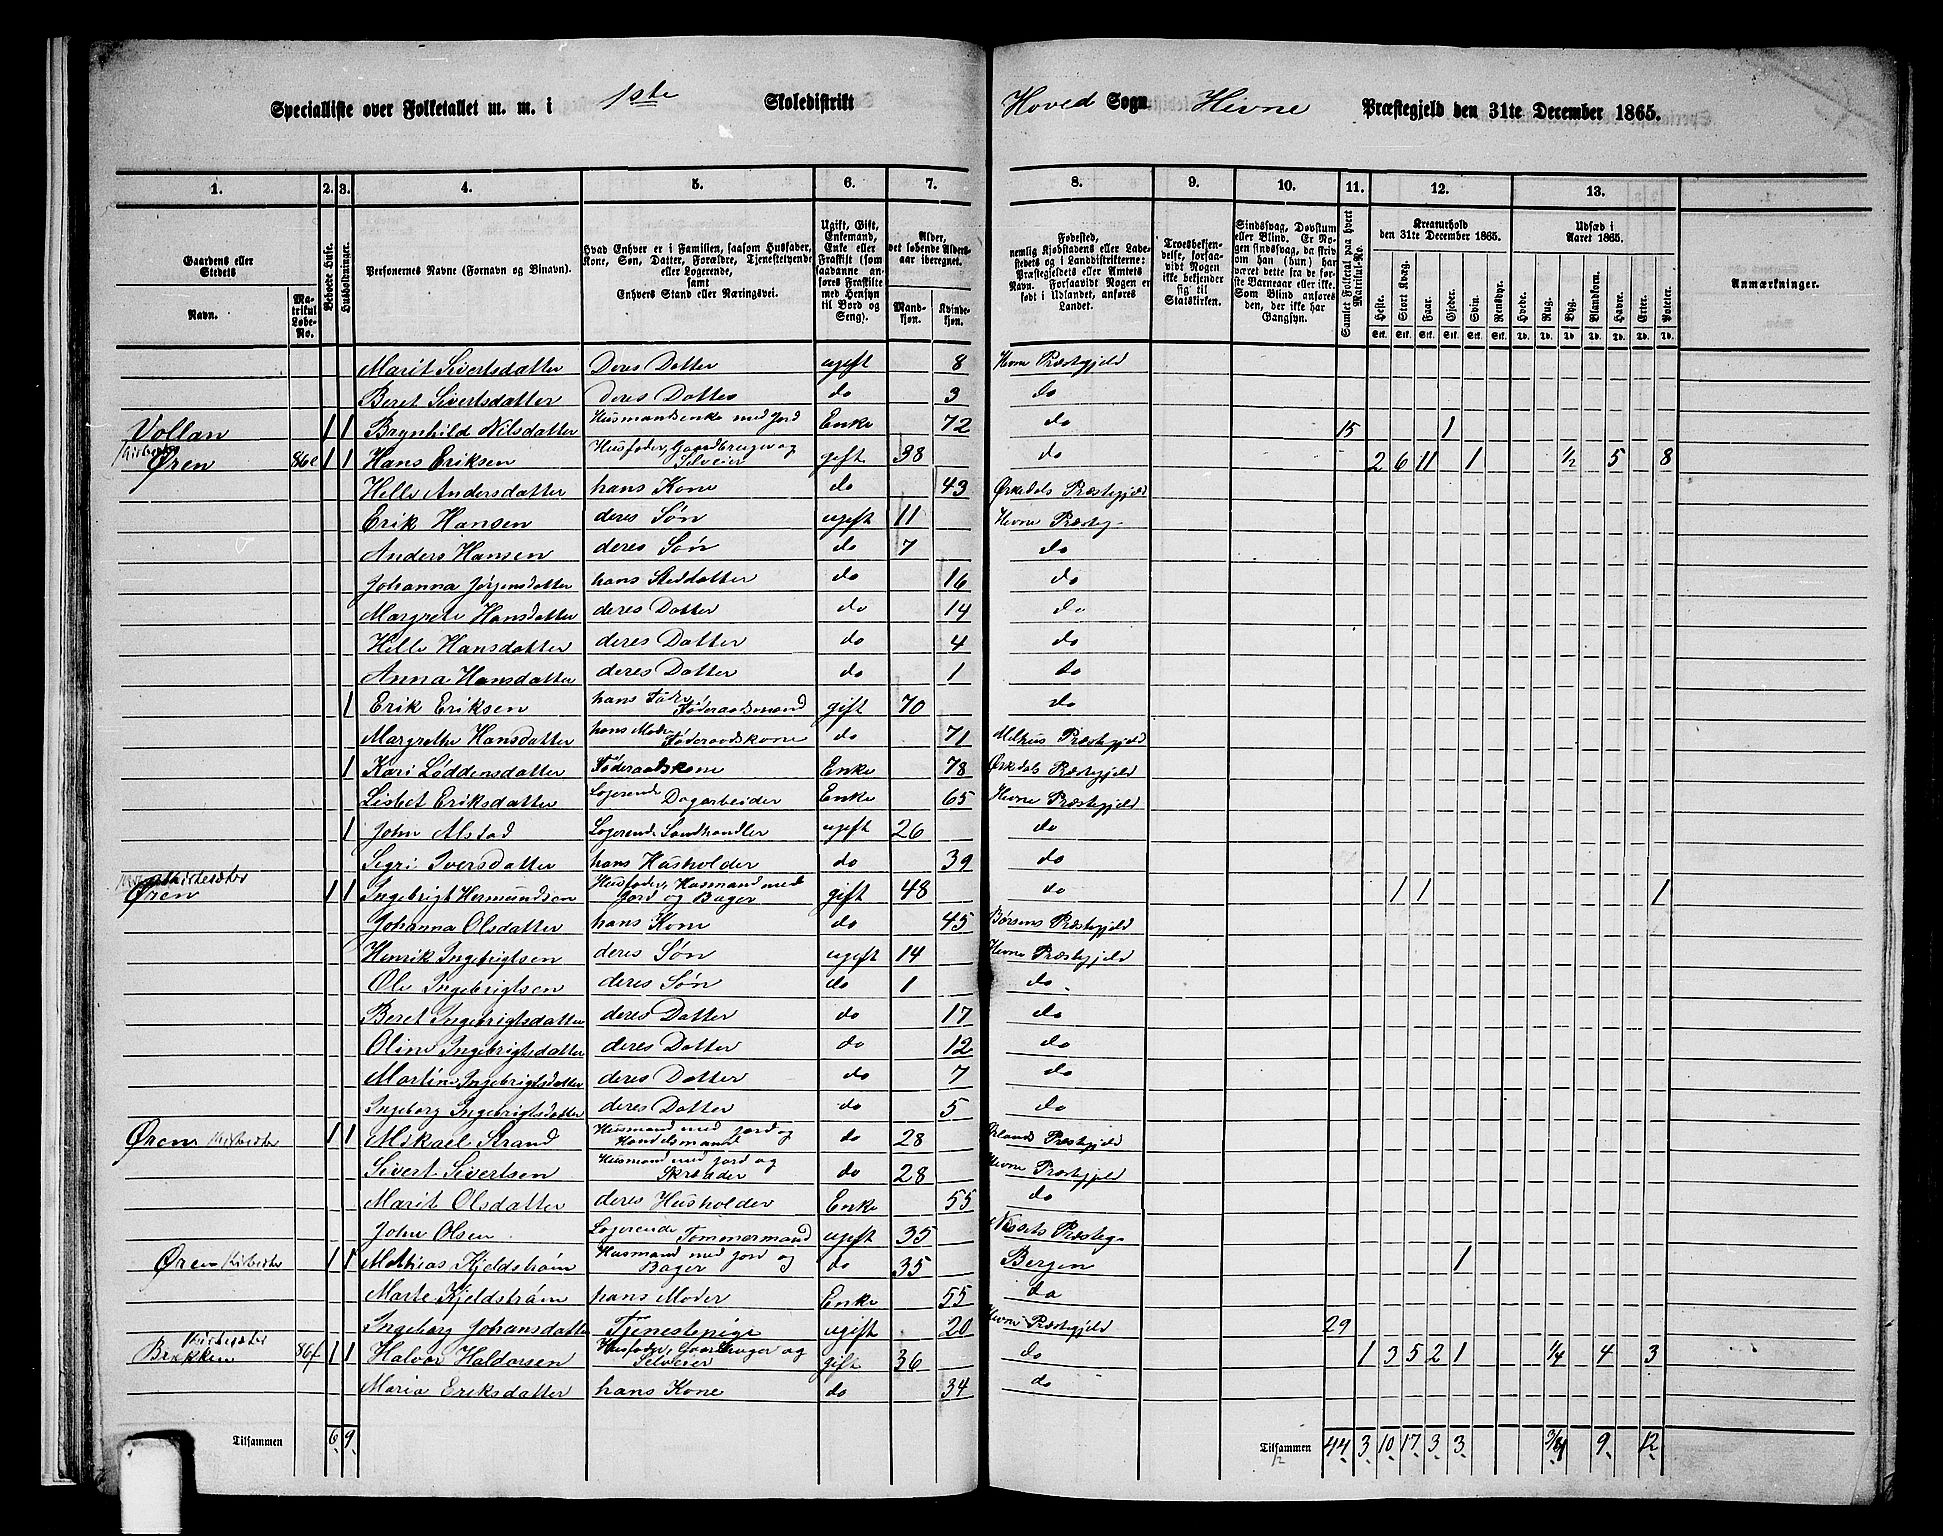 Specialliste over Folketallet m. m. i 1ste Skoledistrikt Hoved Sogn Hevne Præstegjeld den 31te December 1865.
1. 2. 3. 4. 5. 6. 7. 8. 9. 10. 11. 12. 13.
Gaardens eller Stedets
Navn.
Matrikul Løbe-No.
Beboede Huse.
Husholdninger.
Personernes Navne (Fornavn og Binavn).
Hvad Enhver er i Familien, saasom Husfader, Kone, Søn, Datter, Forældre, Tjenestetyende eller Logerende, samt Enhvers Stand eller Næringsvei.
Ugift, Gift, Enkemand, Enke eller Fraskilt (som saadanne anføres Fraskilte med Hensyn til Bord og Seng).
Alder, det løbende Alders-aar iberegnet.
Mandkjøn. Kvindekjøn.
Fødested, nemlig Kjøbstadens eller Ladestedets og i Landdistrikterne: Præstegjeldets eller Amtets Navn. Forsaavidt Nogen er født i Udlandet, anføres Landet.
Troesbekjendelse, forsaavidt Nogen ikke bekjender sig til Statskirken.
Sindssvag, Døvstum eller Blind. Er Nogen sindssvag, da skriv om han (hun) har været dette fra de første Barneaar eller ikke. Som Blind anføres den, der ikke har Gangsyn.
Samlet Folketal paa hvert Matrikul-No.
Kreaturhold den 31te December 1865.
Heste. Stort Kvæg. Faar. Gjeder. Svin. Rensdyr.
Udsæd i Aaret 1865.
Hvede. Rug. Byg. Blandkorn. Havre. Erter. Poteter.
Stk. Stk. Stk. Stk. Stk. Stk. Td. Td. Td. Td. Td. Td. Td.
Anmærkninger.
Marit Sivertsdatter Deres Datter ugift 8 Hevne Præstegjeld
Beret Sivertsdatter deres Datter do 3 do
Vollan 1 1 Brynhild Nilsdatter Husmandsenke med Jord Enke 72 do 15 1
Øren 86e 1 1 Hans Eriksen Husfader, Gaardbruger og Selveier gift 38 do 2 6 11 1 1/2 5 8
Helle Andersdatter hans Kone do 43 Ørkedals Præstegjeld
Erik Hansen deres Søn ugift 11 Hevne Præsteg-
Anders Hansen deres Søn do 7 do
Johanna Jørgensdatter hans Steddatter do 16 do
Margrete Hansdatter deres Datter do 14 do
Helle Hansdatter deres Datter do 4 do
Anna Hansdatter deres Datter do 1 do
1 Erik Eriksen hans Fader, Føderaadsmand gift 70 do
Margrethe Hansdatter hans Moder Føderaadskone do 71 Melhus Præstegjeld
1 Kari Løddensdatter Føderaadskone Enke 78 Ørkedals Præstegjeld
Lisbet Eriksdatter Logerende Dagarbeider Enke 65 Hevne Præstegjeld
1 John Alstad Logerende Landhandler ugift 26 do
Segri Iversdatter hans Husholder do 39 do
Kirksæter
Øren 1 1 Ingebrigt Hermundsen Husfader, Husmand med Jord og Bager gift 48 do 1 1 1
Johanna Olsdatter hans Kone do 45 Børsens Præstegjeld
Henrik Ingebrigtsen deres Søn ugift 14 Hevne Præstegjeld
Ole Ingebrigtsen deres Søn do 1 do
Beret Ingebrigtsdatter deres Datter do 17 do
Oline Ingebrigtsdatter deres Datter do 12 do
Martine Ingebrigtsdatter deres Datter do 7 do
Ingeborg Ingebrigtsdatter deres Datter do 5 do
Øren 1 1 Mikael Strand Husmand med Jord og Handelsmand do 28 Ørlands Præstegjeld
Sivert Sivertsen Husmand med Jord og Skræder do 28 Hevne Præstegjeld
Marit Olsdatter deres Husholder Enke 55 do
John Olsen Logerende Tømmermand ugift 35 Næssets Præsteg-
Øren 1 1 Mathias Kjeldstrøm Husmand med Jord og Bager do 35 Bergen 1
Marte Kjeldstrøm hans Moder Enke 55 do
Ingeborg Johansdatter Tjenestepige ugift 20 Hevne Præstegjeld 29
Bækken 86f 1 1 Halvor Haldorsen Husfader, Gaardbruger og Selveier gift 36 do 1 3 5 2 1 1/4 4 3
Maria Eriksdatter hans Kone do 34 do
Tilsammen 6 9 Tilsammen 44 3 10 17 3 3 3/4 9 12